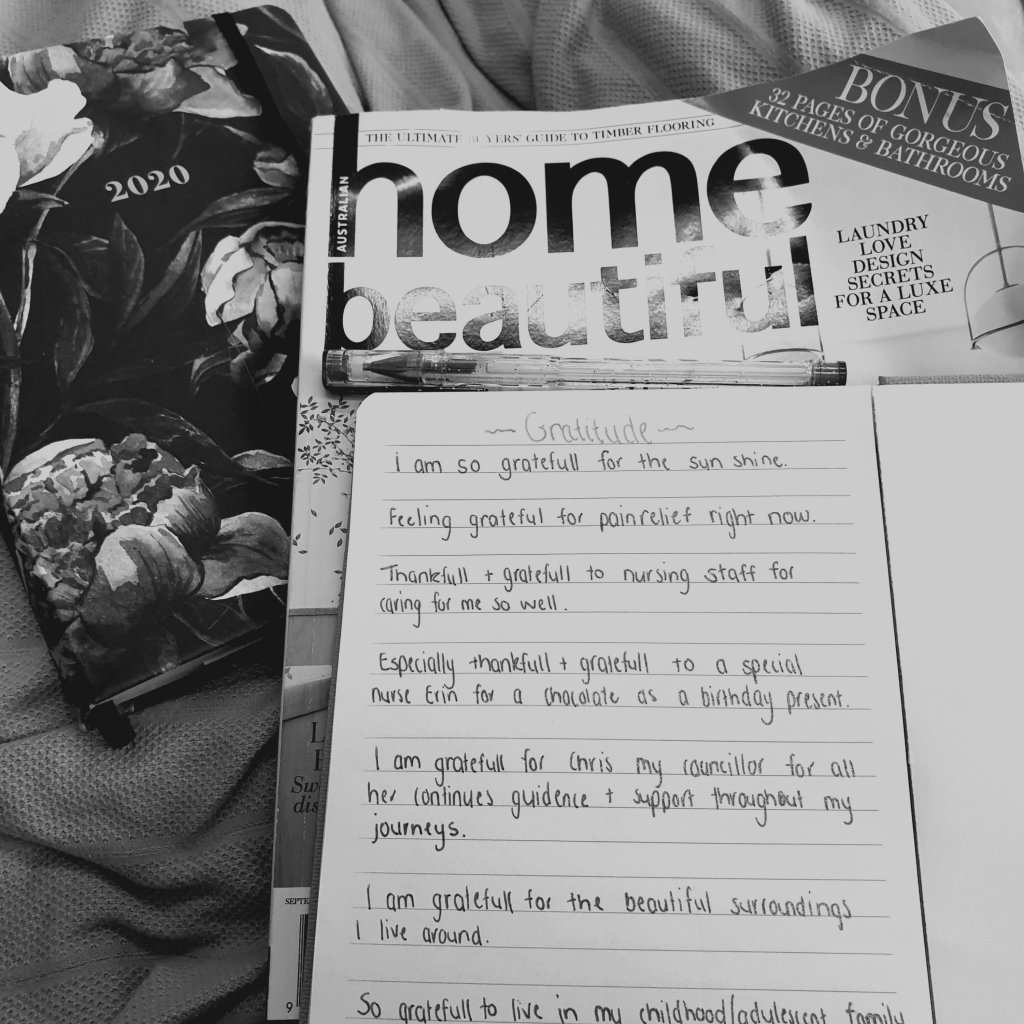 2020
THE ULTIMATE BUYERS' GUIDE TO TIMBER FLOORING
BONUS
32 PAGES OF GORGEOUS
KITCHENS & BATHROOMS
AUSTRALIAN
home
beautiful
LAUNDRY
LOVE
DESIGN
SECRETS
FOR A LUXE
SPACE
~ Gratitude ~
i am so gratefull for the sun shine.
Feeling grateful for painrelief right now.
Thankfull + gratefull to nursing staff for
caring for me so well.
Especially thankfull + gratefull to a special
nurse Erin for a chocolate as a birthday present.
I am gratefull for Chris my councillor for all
her continues guidence + support throughout my
journeys.
I am gratefull for the beautiful surroundings
I live around.
So gratefull to live in my childhood/adulescent family
9